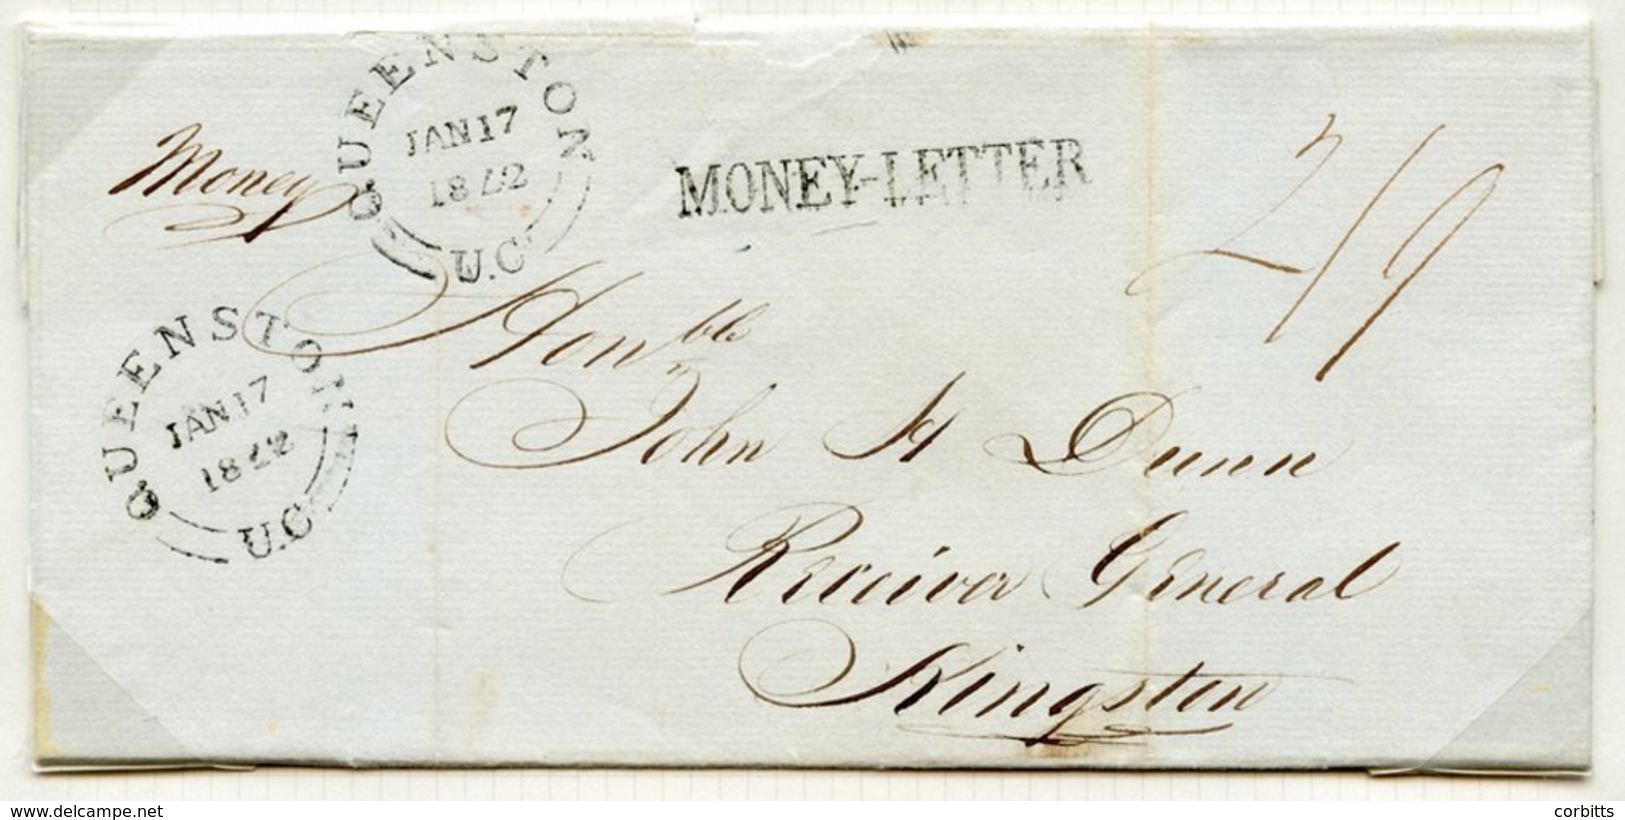 QUEENSTON
JAN 17
1842
U.C.
Money
MONEY-LETTER
2/9
QUEENSTON
JAN 17
1842
U.C.
Honble
John H Dunn
Receiver General
Kingston
www.delcampe.net
corbitts